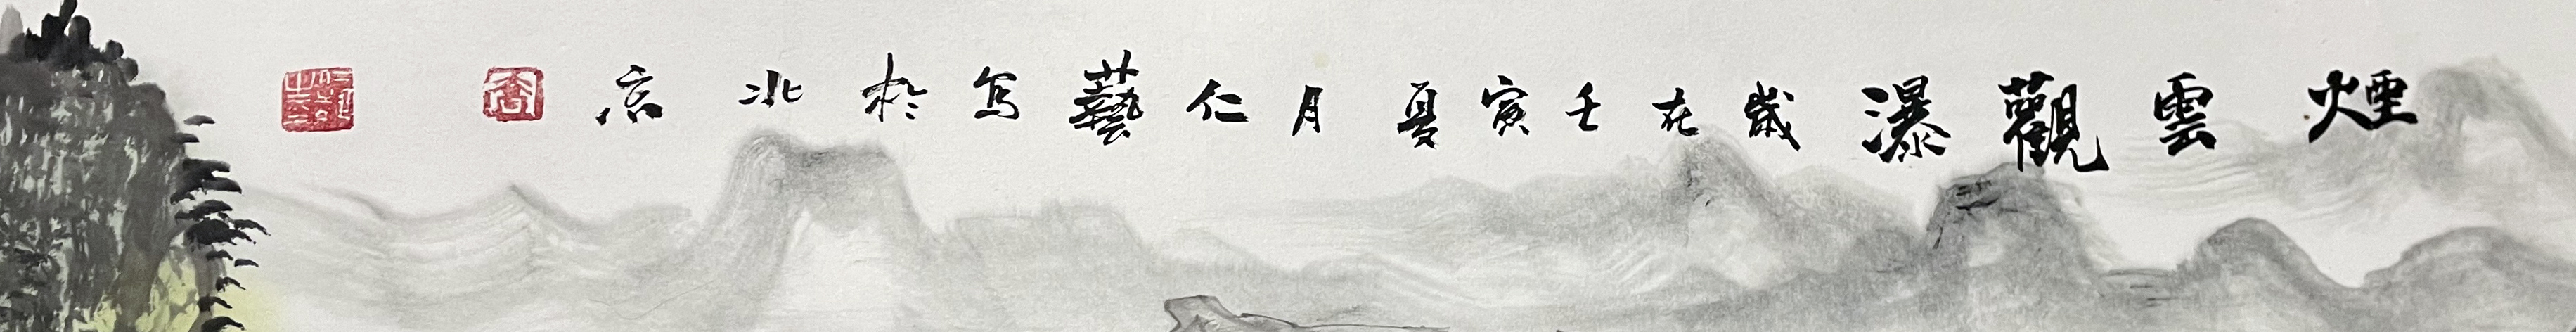 煙雲觀瀑歲在壬寅夏月仁藝寫於北京